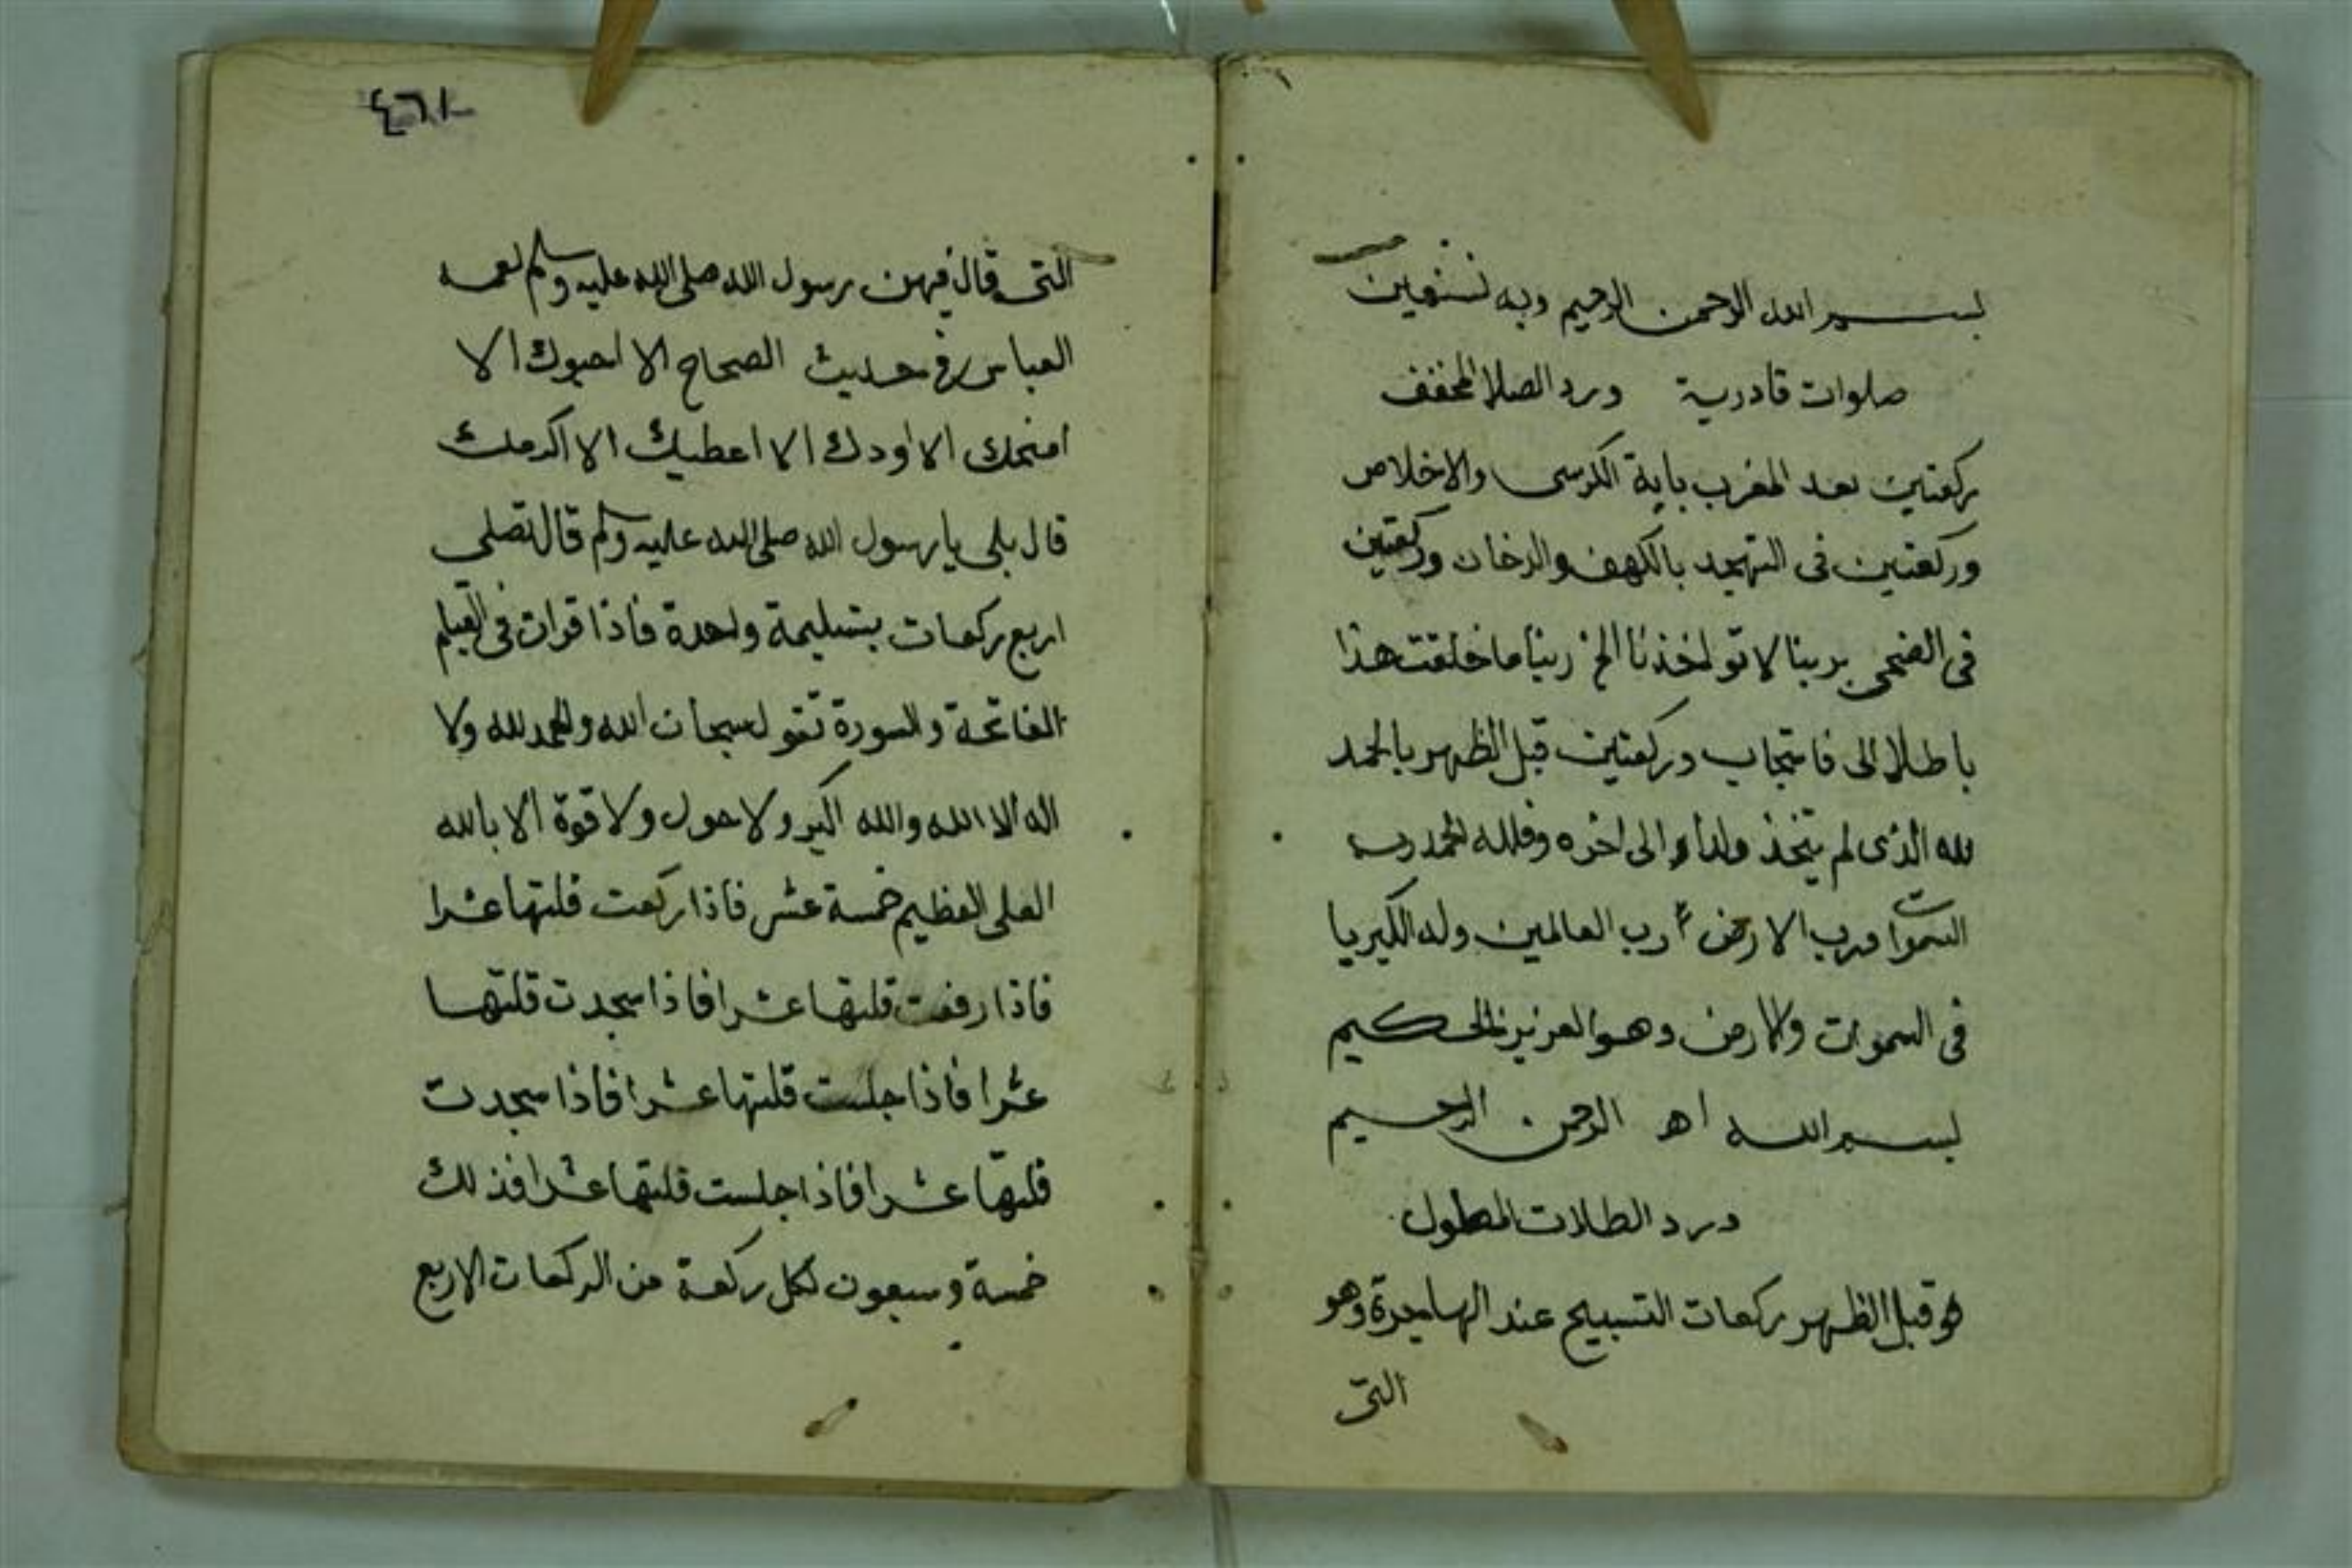 بسم الله الرحمن الرحيم وبه نستعين
صلوات قادرية ورد الصلا المخفف
ركعتين بعد المغرب باية الكرسى والاخلاص
وركعتين فى التهجد بالكهف والدخان وركعتين
فى الضحى بربنا لا تواخذنا الخ ربنا ما خلقت هذا
باطلا الى فاستجاب وركعتين قبل الظهر بالحمد
لله الذى لم يتخذ ولدا الى اخره وفلله الحمد رب
السموات ورب الارض رب العالمين وله الكبريا
فى السموات والارض وهو العزيز الحكيم
بسم الله اهـ الرحمن الرحيم
درد الطلات المطول
هو قبل الظهر ركعات التسبيح عند الهاجرة وهو
التى
التى قال فيهن رسول الله صلى الله عليه وسلم لعمه
العباس فى حديث الصحاح الا احبوك الا
امنحك الا اودك الا اعطيك الا اكرمك
قال بلى يا رسول الله صلى الله عليه وسلم قال تصلى
اربع ركعات بتسليمة واحدة فاذا قرات فى القيام
الفاتحة والسورة تقول سبحان الله والحمد لله ولا
اله الا الله والله اكبر ولا حول ولا قوة الا بالله
العلى العظيم خمسة عشر فاذا ركعت قلتها عشرا
فاذا رفعت قلتها عشرا فاذا سجدت قلتها
عشرا فاذا جلست قلتها عشرا فاذا سجدت
قلتها عشرا فاذا جلست قلتها عشرا فذلك
خمسة وسبعون لكل ركعة من الركعات الاربع